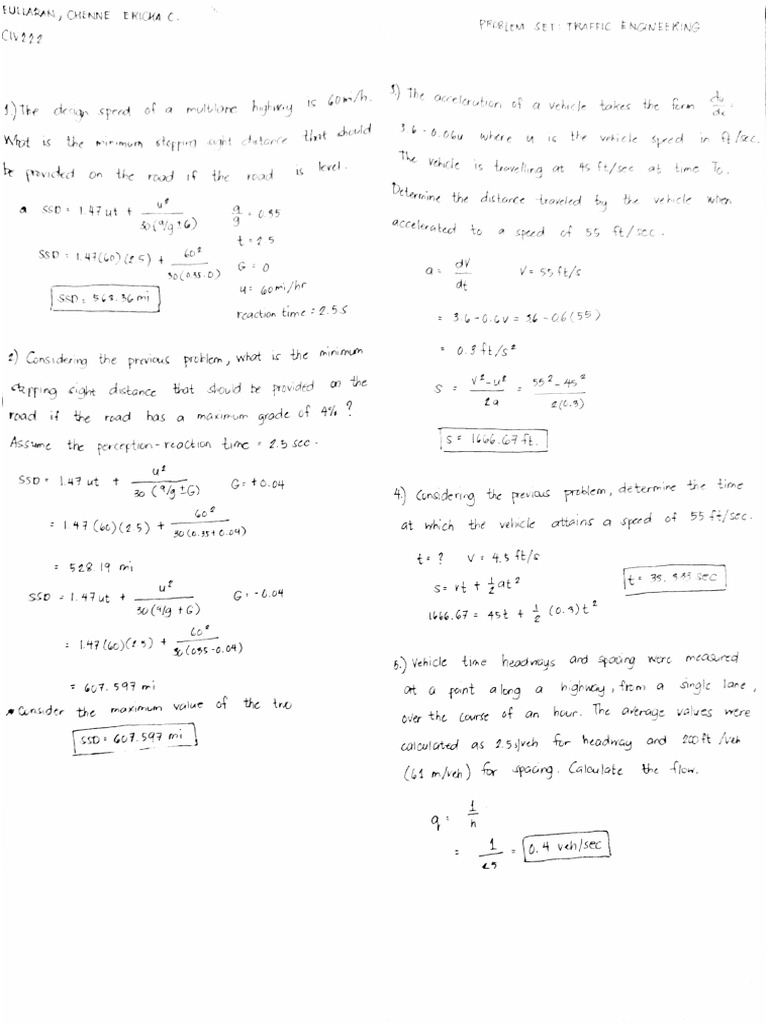 FULLARAN, CHENNE ERICHA C.
CIV222
PROBLEM SET: TRAFFIC ENGINEERING
1.) The design speed of a multilane highway is 60mi/h.
What is the minimum stopping sight distance that should
be provided on the road if the road is level.
a SSD = 1.47ut + u² / 30(a/g±G)
a/g = 0.35
t = 2.5
SSD = 1.47(60)(2.5) + 60² / 30(0.35-0)
G = 0
u = 60mi/hr
SSD = 563.36 mi
reaction time = 2.5s
2) Considering the previous problem, what is the minimum
stopping sight distance that should be provided on the
road if the road has a maximum grade of 4% ?
Assume the perception-reaction time = 2.5 sec.
SSD = 1.47 ut + u² / 30 (a/g ± G) G = +0.04
= 1.47(60)(2.5) + 60² / 30(0.35+0.04)
= 528.19 mi
SSD = 1.47ut + u² / 30(a/g + G) G = -0.04
= 1.47(60)(2.5) + 60² / 30(035-0.04)
= 607.597 mi
* Consider the maximum value of the two
SSD = 607.597 mi
3) The acceleration of a vehicle takes the form du/dt.
3.6 - 0.06u where u is the vehicle speed in ft/sec.
The vehicle is travelling at 45 ft/sec at time To.
Determine the distance traveled by the vehicle when
accelerated to a speed of 55 ft/sec.
a = dV/dt V = 55ft/s
= 3.6-0.6V = 3.6-0.6(55)
= 0.3 ft/s²
s = V²-u² / 2a = 55²-45² / 2(0.3)
s = 1666.67 ft.
4.) Considering the previous problem, determine the time
at which the vehicle attains a speed of 55 ft/sec.
t = ? V = 4.5 ft/s
s = vt + 1/2 at²
t = 33.333 sec
1666.67 = 45t + 1/2 (0.3)t²
5.) Vehicle time headways and spacing were measured
at a point along a highway, from a single lane,
over the course of an hour. The average values were
calculated as 2.5s/veh for headway and 200ft/veh
(61 m/veh) for spacing. Calculate the flow.
q = 1/h
= 1/2.5 = 0.4 veh/sec